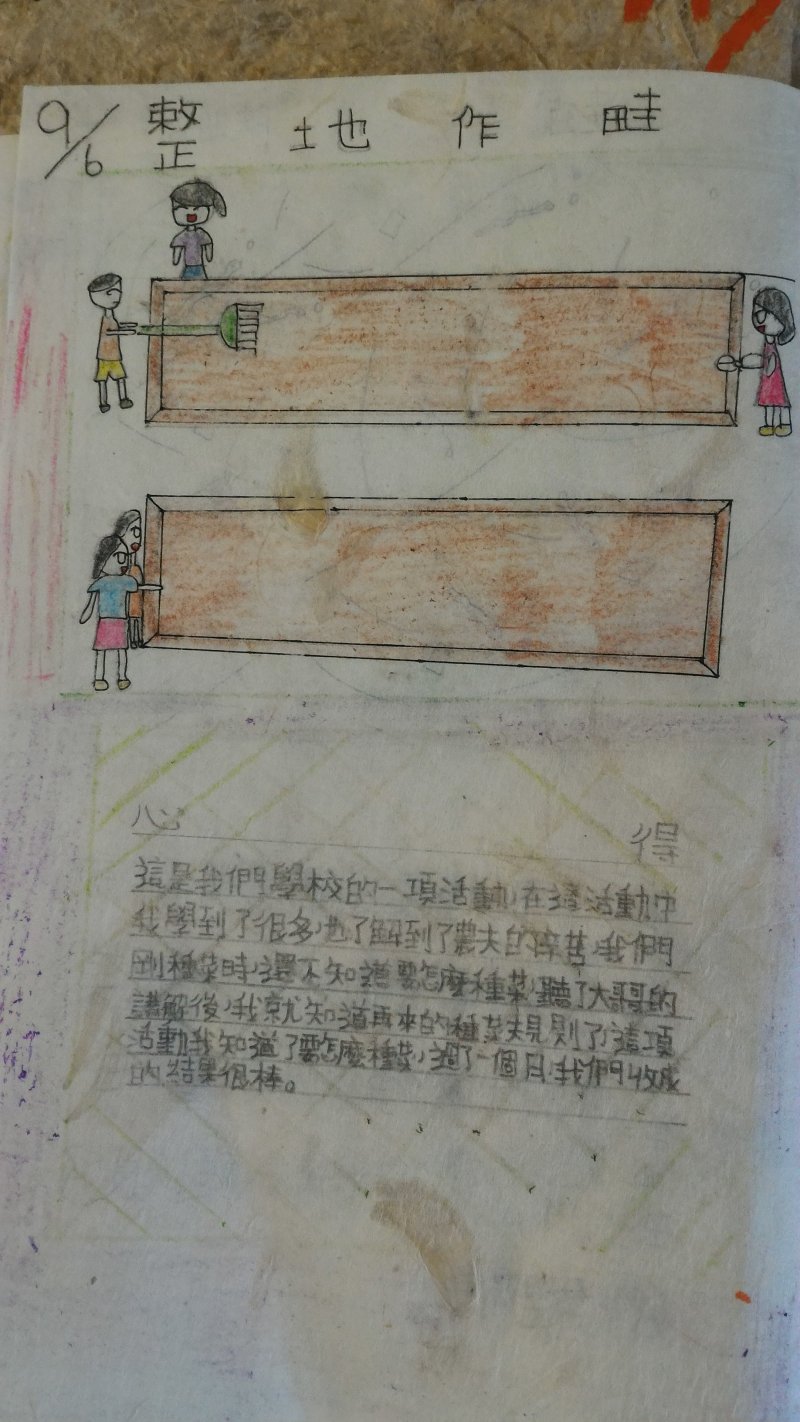 9/6 整地作畦
心得
這是我們學校的一項活動，在這活動中
我學到了很多，也了解到了農夫的辛苦，我們
剛種菜時，還不知道要怎麼種菜，聽了大哥的
講解後，我就知道再來的種菜規則了，這項
活動我知道了要怎麼種菜，過了一個月，我們收成
的結果很棒。